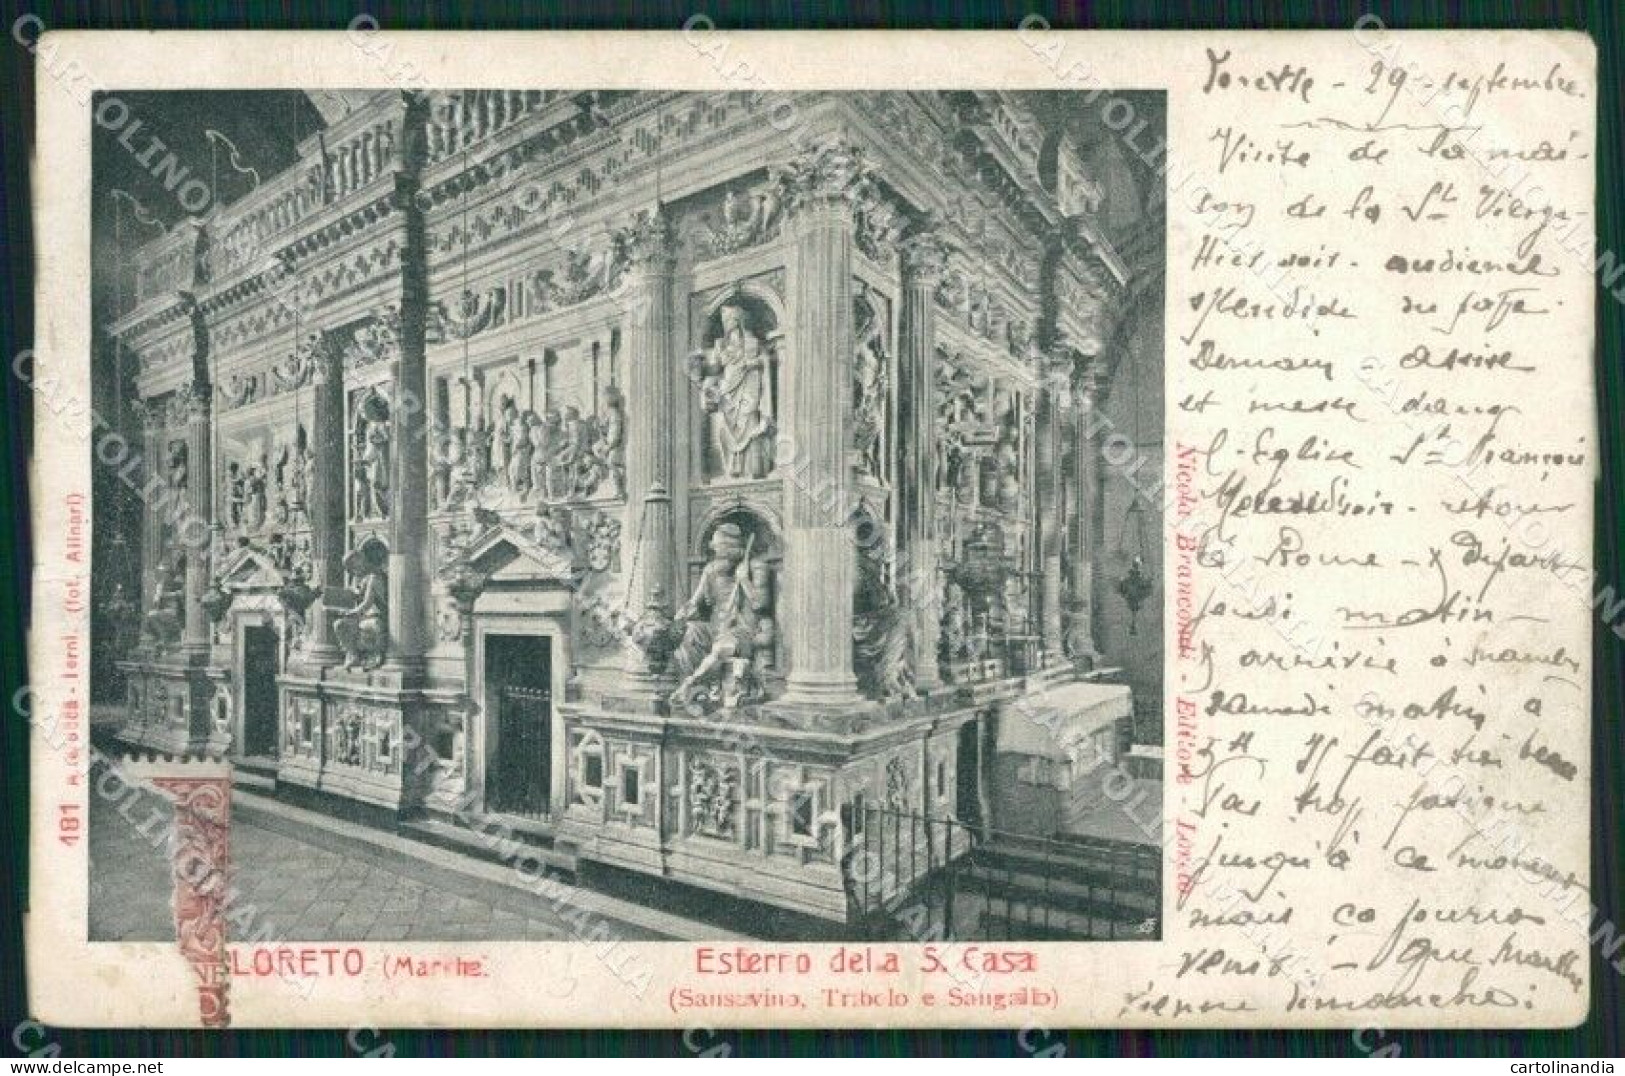 Lorette - 29 - septembre.
Visite de la mai-
son de la Ste Vierge-
Hier soir - audience
splendide du pape.
Demain - assise
et messe dans
l'Eglise St François
retour
à Rome - Départ
jeudi matin -
arrivée à
samedi matin à
5 H - Il fait très beau
Pas trop fatigué
jusqu'à ce moment
mais ça pourra
venir - Que Marthe
vienne dimanche :
181 (fot. Alinari)
Nicola Brancondi - Editore - Loreto
LORETO (Marche)
Esterno della S. Casa
(Sansovino, Tribolo e Sangallo)
CARTOLINOMANIA
cartolinandia